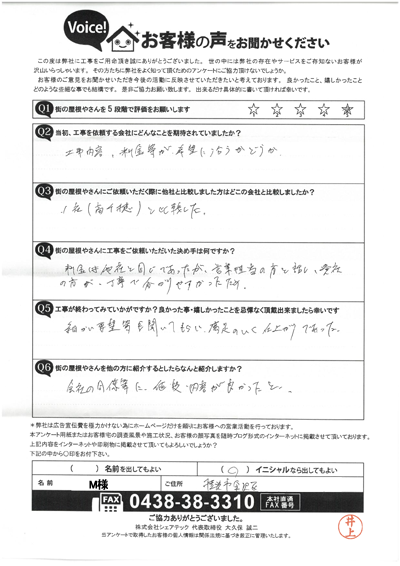 Voice!
お客様の声をお聞かせください
この度は弊社に工事をご用命頂き誠にありがとうございました。世の中には弊社の存在やサービスをご存知ないお客様が
沢山いらっしゃいます。その方たちに弊社をよく知って頂くためのアンケートにご協力頂けないでしょうか。
お客様のご意見をお聞かせいただき今後の活動に反映させていただきたいと考えております。良かったこと、嬉しかったこと
どのような些細な事でも結構です。是非ご協力お願い致します。出来るだけ具体的に書いて頂ければ幸いです。
Q1 街の屋根やさんを5段階で評価をお願いします
☆ ☆ ☆ ☆ ☆
Q2 当初、工事を依頼する会社にどんなことを期待されていましたか?
工事内容、料金等が希望に沿うかどうか.
Q3 街の屋根やさんにご依頼いただく際に他社と比較しました方はどこの会社と比較しましたか?
と比較した.
Q4 街の屋根やさんに工事をご依頼いただいた決め手は何ですか?
料金は他社と同じであったが、営業担当の方と話し、
の方が、丁寧で分かりやすかったため.
Q5 工事が終わってみていかがですか?良かった事・嬉しかったことを忌憚なく頂戴出来ましたら幸いです
細かい要望等も聞いてもらい、満足のいく仕上がりであった.
Q6 街の屋根やさんを他の方に紹介するとしたらなんと紹介しますか?
会社の同僚等に、価格・内容が良かったと.
*弊社は広告宣伝費を極力かけない為にホームページだけを頼りにお客様への営業活動を行っております。
本アンケート用紙またはお客様宅の調査風景や施工状況、お客様の顔写真を随時ブログ形式のインターネットに掲載させて頂いております。
上記内容をインターネットや印刷物に掲載させて頂いてもよろしいでしょうか?
下記の中から〇印をお付下さい。
( ) 名前を出してもよい ( ○ ) イニシャルなら出してもよい
名前 M様 ご住所
FAX 0438-38-3310 本社直通 FAX番号
ご協力ありがとうございました。
株式会社シェアテック 代表取締役 大久保 誠二
当アンケートで取得したお客様の個人情報は関係法規に基づき厳正に管理いたします。
井上